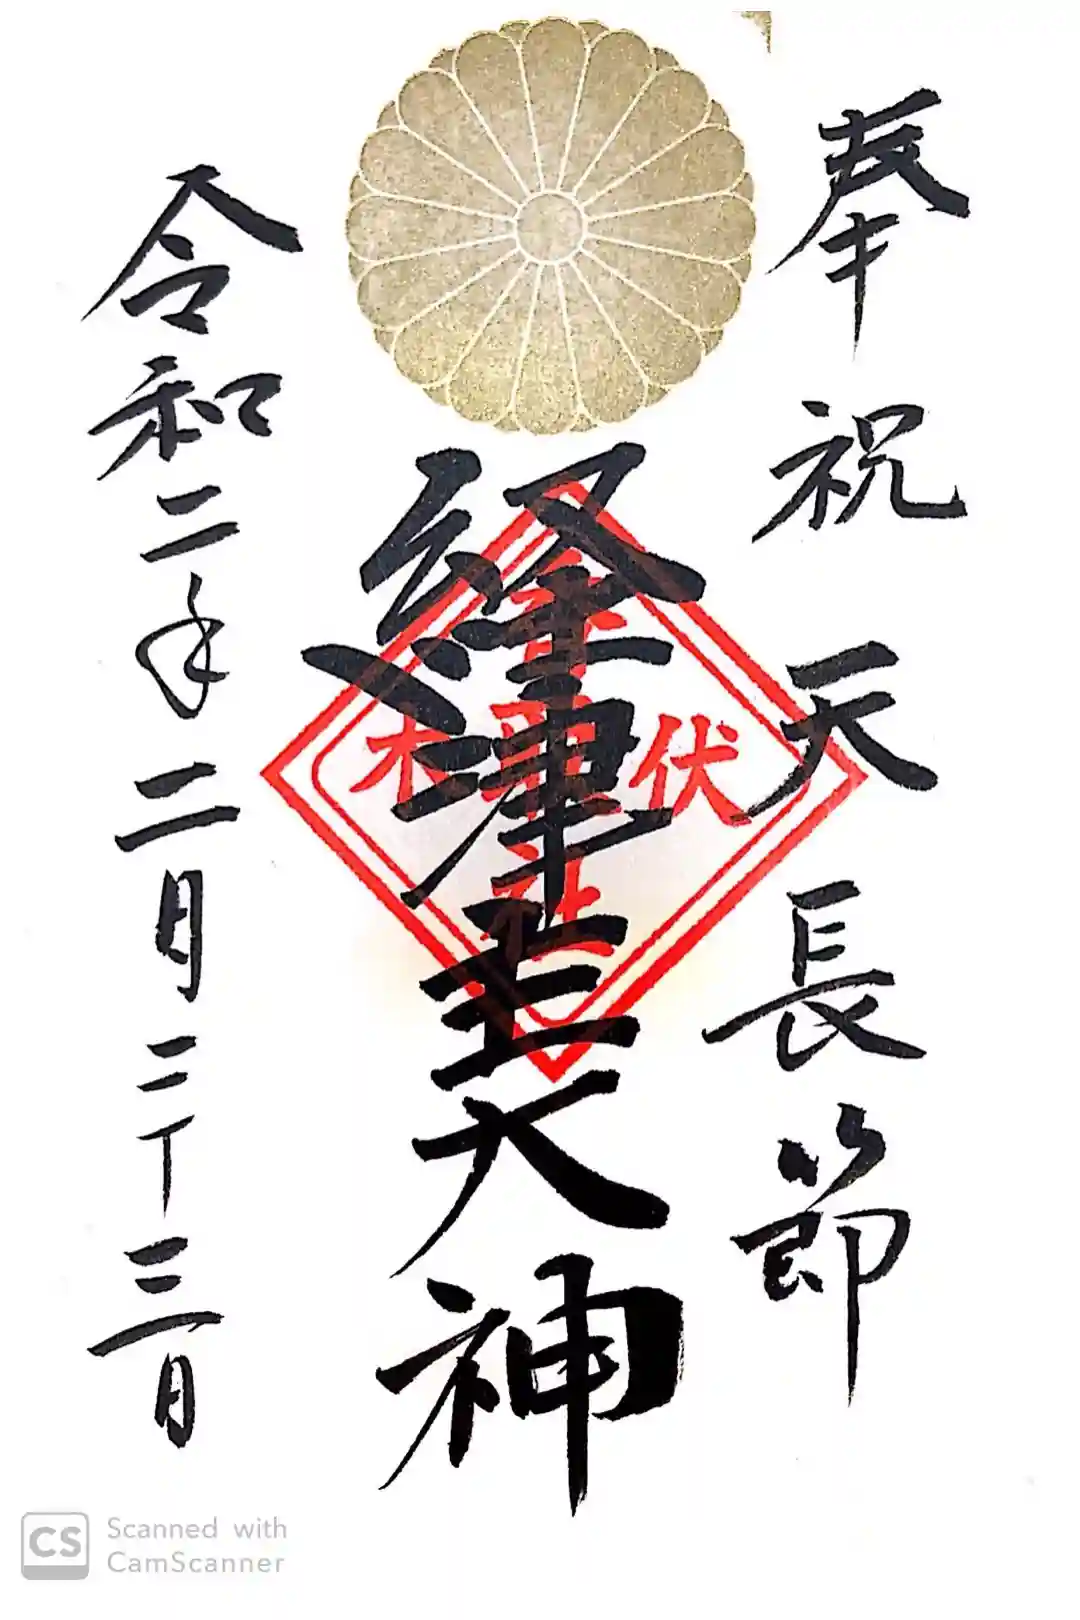 奉祝天長節
経津主大神
令和二年二月二十三日
伏木
社
Scanned with
CamScanner
CS